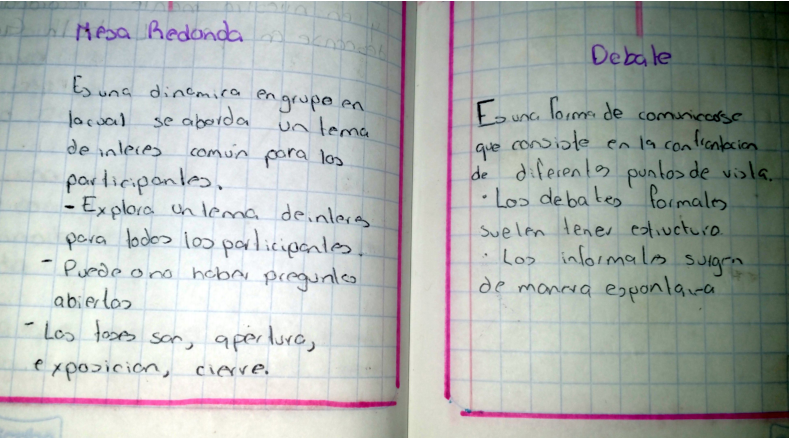 Mesa Redonda
Es una dinamica en grupo en
la cual se aborda un tema
de interes común para los
participantes.
- Explora un tema de interes
para todos los participantes.
- Puede o no haber preguntas
abiertas
- Las fases son, apertura,
exposicion, cierre.
Debate
Es una forma de comunicarse
que consiste en la confrontacion
de diferentes puntos de vista.
· Los debates formales
suelen tener estructura
· Los informales surgen
de manera espontanea